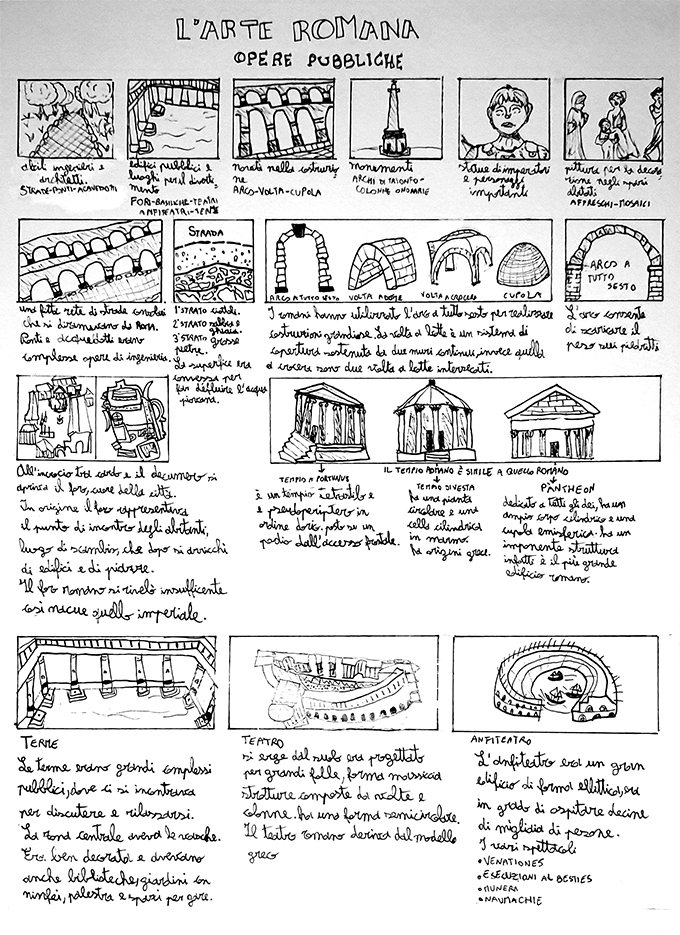 L'ARTE ROMANA
OPERE PUBBLICHE
abili ingegnieri e
architetti.
STRADE-PONTI-ACQUEDOTTI
edifici pubblici e
luoghi per il diverti-
mento
FORI-BASILICHE-TEATRI
ANFITEATRI-TERME
novità nella costruzio
ne
ARCO-VOLTA-CUPOLA
monementi
ARCHI DI TRIONFO-
COLONNE ONORARIE
statue di imperatori
e personaggi
importanti
pitture per la decora
zione negli spazi
abitati
AFFRESCHI-MOSAICI
STRADA
ARCO A TUTTO SESTO
VOLTA A BOTTE
VOLTA A CROCIERA
CUPOLA
ARCO A
TUTTO
SESTO
una fitta rete di strade consolari
che si diramavano da Roma.
Ponti e acquedotti erano
complesse opere di ingegneria.
1°STRATO
2°STRATO sabbia e
ghiaia.
3°STRATO grosse
pietre.
La superfice era
convessa per
far defluire l'acqua
piovana.
I romani hanno utilizzato l'arco a tutto sesto per realizzare
costruzioni grandiose. La volta a botte è un sistema di
copertura sostenuta da due muri continui, invece quella
a crocera sono due volta a botte intersecati.
L'arco consente
di scaricare il
peso sui piedritti
All'incrocio tra cardo e il decumero si
apriva il foro, cuore della città.
In origine il foro rappresentava
il punto di incontro degli abitanti,
luogo di scambio, che dopo si arricchi
di edifici e di piazze.
Il foro romano si rivelò insufficente
così nacque quello imperiale.
IL TEMPIO ROMANO È SIMILE A QUELLO ROMANO
TEMPIO A PORTUNUS
è un tempio tetrastilo e
e pseudoperiptero in
ordine ionico. posto su un
podio dall'accesso frontale.
TEMPIO DI VESTA
ha una pianta
circolare e una
cella cilindrica
in marmo.
ha origini greca.
PANTHEON
dedicato a tutti gli dei, ha un
ampio corpo cilindrico e una
cupola emisferica. ha un
imponente struttura
infatti è il più grande
edificio romano.
TERME
Le terme erano grandi complessi
pubblici, dove ci si incontrava
per discutere e rilassarsi.
La zona centrale aveva le vasche.
Era ben decorata e avevano
anche biblioteche, giardini con
ninfei, palestra e spazi per gare.
TEATRO
si erge dal suolo era progettato
per grandi folle, forma massiccia
strutture composte da volte e
colonne. ha una forma semicircolare.
Il teatro romano deriva dal modello
greco
ANFITEATRO
L'anfiteatro era un gran
edificio di forma ellittica, era
in grado di ospitare decine
di migliaia di persone.
I vari spettacoli
•VENATIONES
•ESECUZIONI AL BESTIES
•MUNERA
•NAUMACHIE